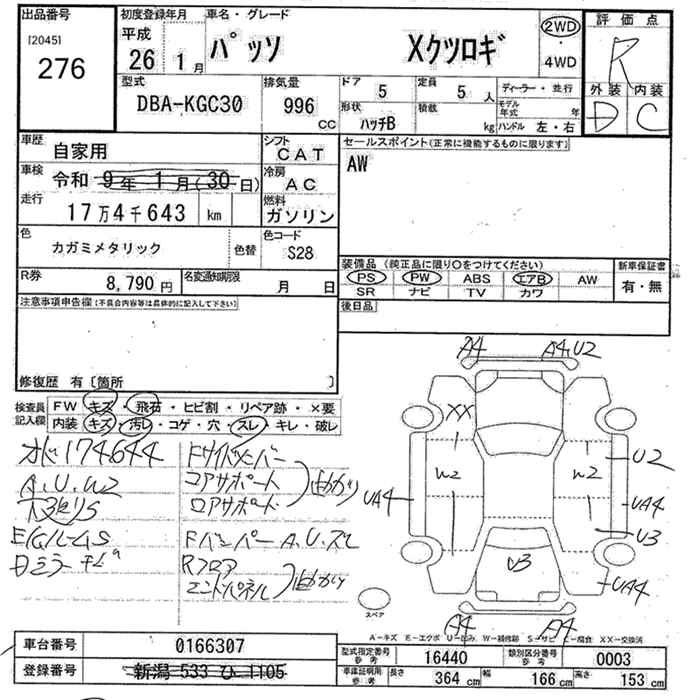 出品番号
[2045]
276
初度登録年月
平成
26 1月
車名・グレード
パッソ Xクツロギ
2WD
・
4WD
評価点
R
外装 内装
D C
型式
DBA-KGC30
排気量
996 CC
ドア
5
形状
ハッチB
定員
5 人
積載
kg
ディーラー・並行
モデル年式 年
ハンドル 左・右
車歴
自家用
車検
令和 9年 1月(30日)
走行
17万4千643 km
シフト
CAT
冷房
AC
燃料
ガソリン
色
カガミメタリック
色替
色コード
S28
R券
8,790円
名変通知期限
月 日
セールスポイント(正常に機能するものに限ります)
AW
装備品(純正品に限り○をつけてください)
PS PW ABS エアB AW
SR ナビ TV カワ
新車保証書
有・無
後日品
注意事項申告欄(不具合内容等は具体的に記入して下さい)
修復歴 有〔箇所 〕
検査員
記入欄
FW キズ・飛石・ヒビ割・リペア跡・×要
内装 キズ・汚レ・コゲ・穴・スレ・キレ・破レ
174644
A.U.W2
Fサイドメンバー
コアサポート
ロアサポート
曲がり
Fバンパー A.U.スレ
Rフロア
エンドパネル
曲がり
A4
A4.U2
XX
W2
W2
U2
UA4
UA4
U3
U3
UA4
A4
A4
スペア
A-キズ E-エクボ U-凹み W-補修跡 S-サビ C-腐食 XX-交換済
車台番号
0166307
登録番号
新潟 533 ひ 1105
型式指定番号
参考
16440
類別区分番号
参考
0003
車庫証明用
参考
長さ 364 cm 幅 166 cm 高さ 153 cm